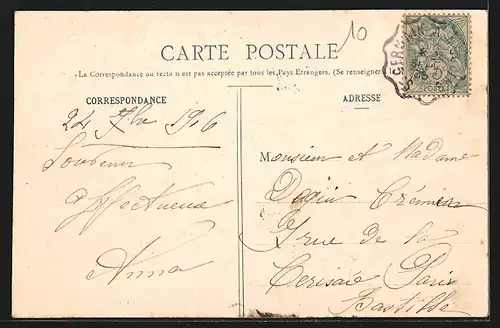 10
CARTE POSTALE
La Correspondance au recto n'est pas acceptée par tous les Pays Etrangers. (Se renseigner
CORRESPONDANCE
ADRESSE
24 7bre 1906
Souvenir
affectueux
Anna
Monsieur et Madame
Crémieu
rue de la
Cerisaie Paris
Bastille